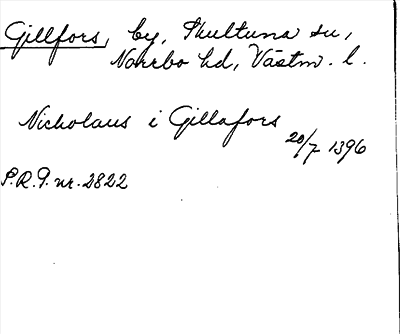 Gillfors, by, Skultuna sn,
Norrbo hd, Västm. l.
Nicholaus i Gillafors
20/7 1396
P.R.P. nr. 2822